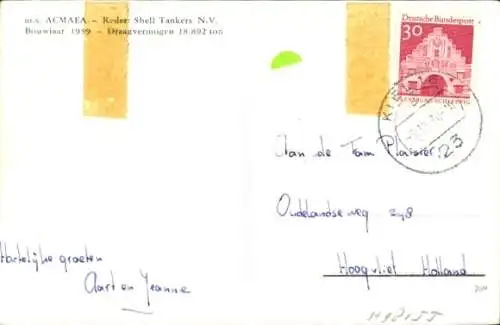 m.s. ACMAEA – Reder: Shell Tankers N.V.
Bouwjaar 1959 – Draagvermogen 18.892 ton
Deutsche Bundespost
30
FLENSBURG/SCHLESWIG
KIEL
23
Aan de Fam Plaisier
Oudelandseweg 298
Hoogvliet Holland
Hartelijke groeten
Aart en Jeanne